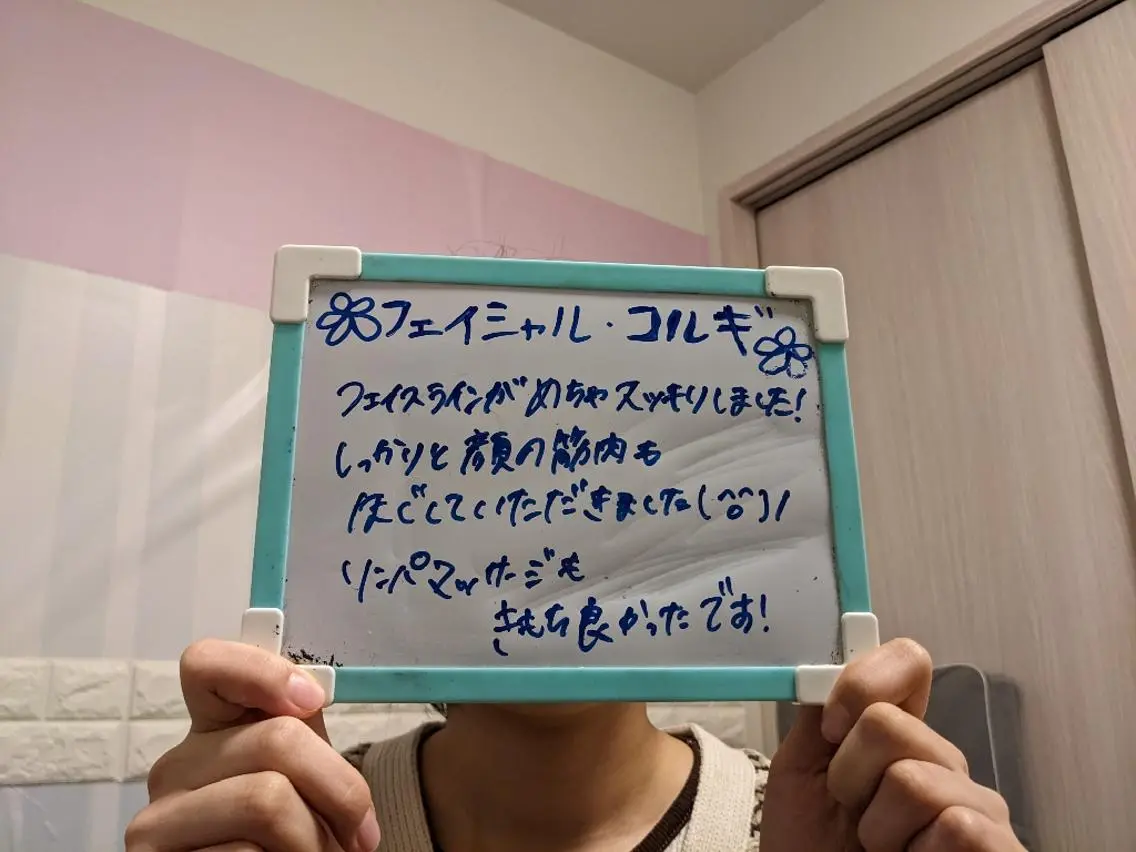 フェイシャル・コルギ
フェイスラインがめちゃスッキリしました!
しっかりと顔の筋肉も
ほぐしていただきました(^o^)/
リンパマッサージも
きもち良かったです!